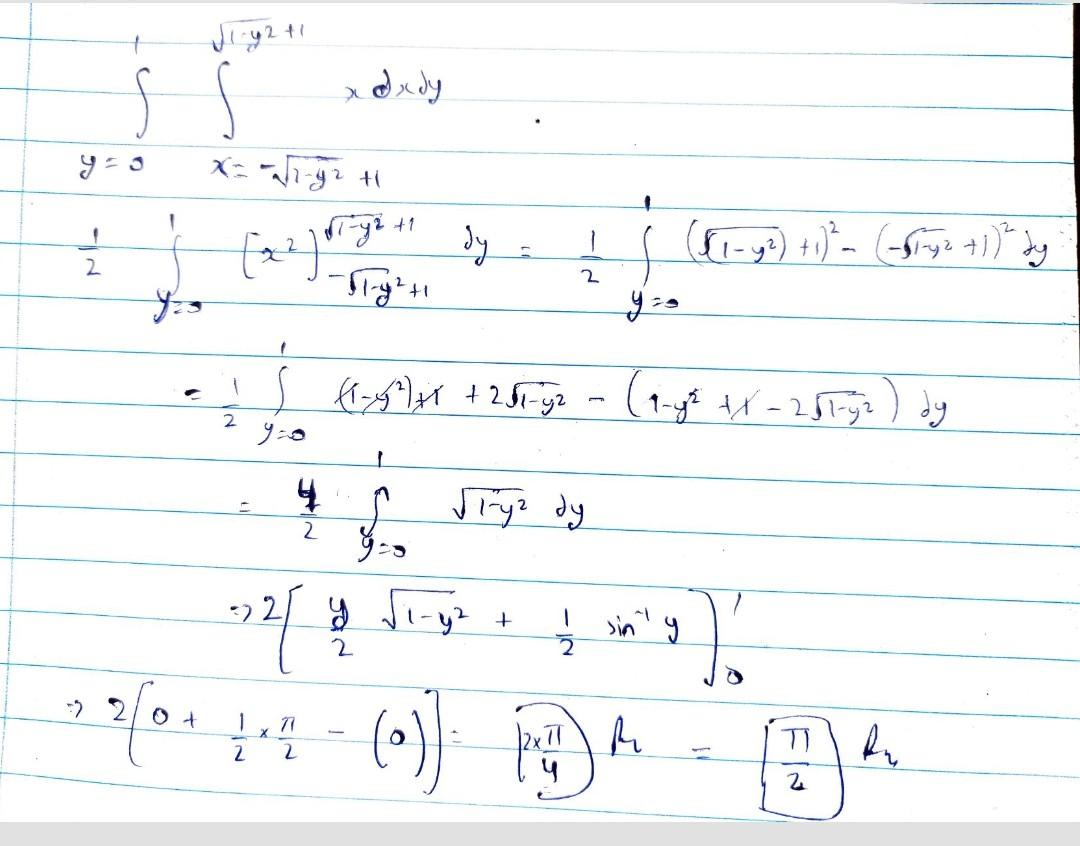 ∫_{y=0}^{1} ∫_{x=-√(1-y²)+1}^{√(1-y²)+1} x dx dy
1/2 ∫_{y=0}^{1} [x²]_{-√(1-y²)+1}^{√(1-y²)+1} dy = 1/2 ∫_{y=0}^{1} (√(1-y²)+1)² - (-√(1-y²)+1)² dy
= 1/2 ∫_{y=0}^{1} (1-y²)+1 + 2√(1-y²) - (1-y²+1-2√(1-y²)) dy
= 4/2 ∫_{y=0}^{1} √(1-y²) dy
=> 2[y/2 √(1-y²) + 1/2 sin⁻¹ y]_{0}^{1}
=> 2[0 + 1/2 × π/2 - (0)] = 2×π/4 = π/2